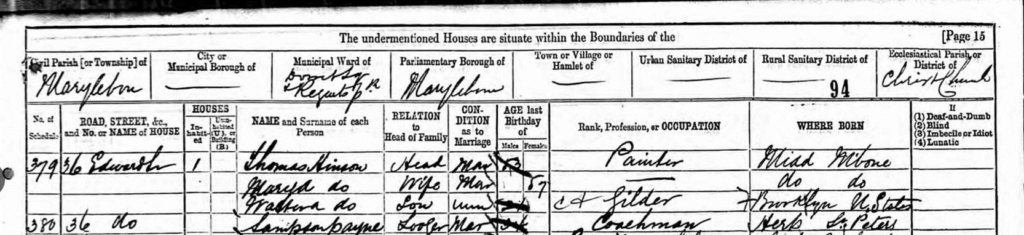 The undermentioned Houses are situate within the Boundaries of the [Page 15
Civil Parish [or Township] of City or Municipal Borough of Municipal Ward of Parliamentary Borough of Town or Village or Hamlet of Urban Sanitary District of Rural Sanitary District of Ecclesiastical Parish or District of
Marylebone Dorset Sq & Regents Pk Marylebone 94 Christ Church
No. of Schedule ROAD, STREET, &c., and No. or NAME of HOUSE HOUSES In-habited Un-inhabited (U.), or Building (B.) NAME and Surname of each Person RELATION to Head of Family CON-DITION as to Marriage AGE last Birthday of Males Females Rank, Profession, or OCCUPATION WHERE BORN If (1) Deaf-and-Dumb (2) Blind (3) Imbecile or Idiot (4) Lunatic
379 36 Edward St 1 Thomas Hinson Head Mar 53 Painter Midd M'bone
Mary do Wife Mar 57 do do
do Son Unm Gilder Brooklyn U. States
380 36 do Sampson Payne Lodger Mar Coachman Herts St Peters